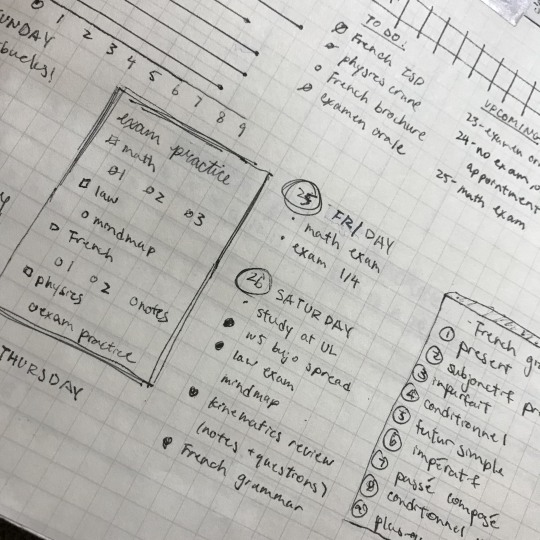 SUNDAY
bucks!
0 1 2 3 4 5 6 7 8 9
TO DO:
French ISP
physics crune
French brochure
examen orale
UPCOMING
23-examen or
24-no exam p
appointment
25-math exam
exam practice
math
1 2 3
law
mindmap
French
1 2 notes
physics
exam practice
THURSDAY
25 FRIDAY
math exam
exam 1/4
26 SATURDAY
study at UL
ws bujo spread
law exam
mindmap
kinematics review
(notes + questions)
French grammar
French gra
1 present
2 subjonctif pr
3 imparfait
4 conditionnel
5 futur simple
6 impératif
7 passé composé
8 conditionnel
9 plus-q